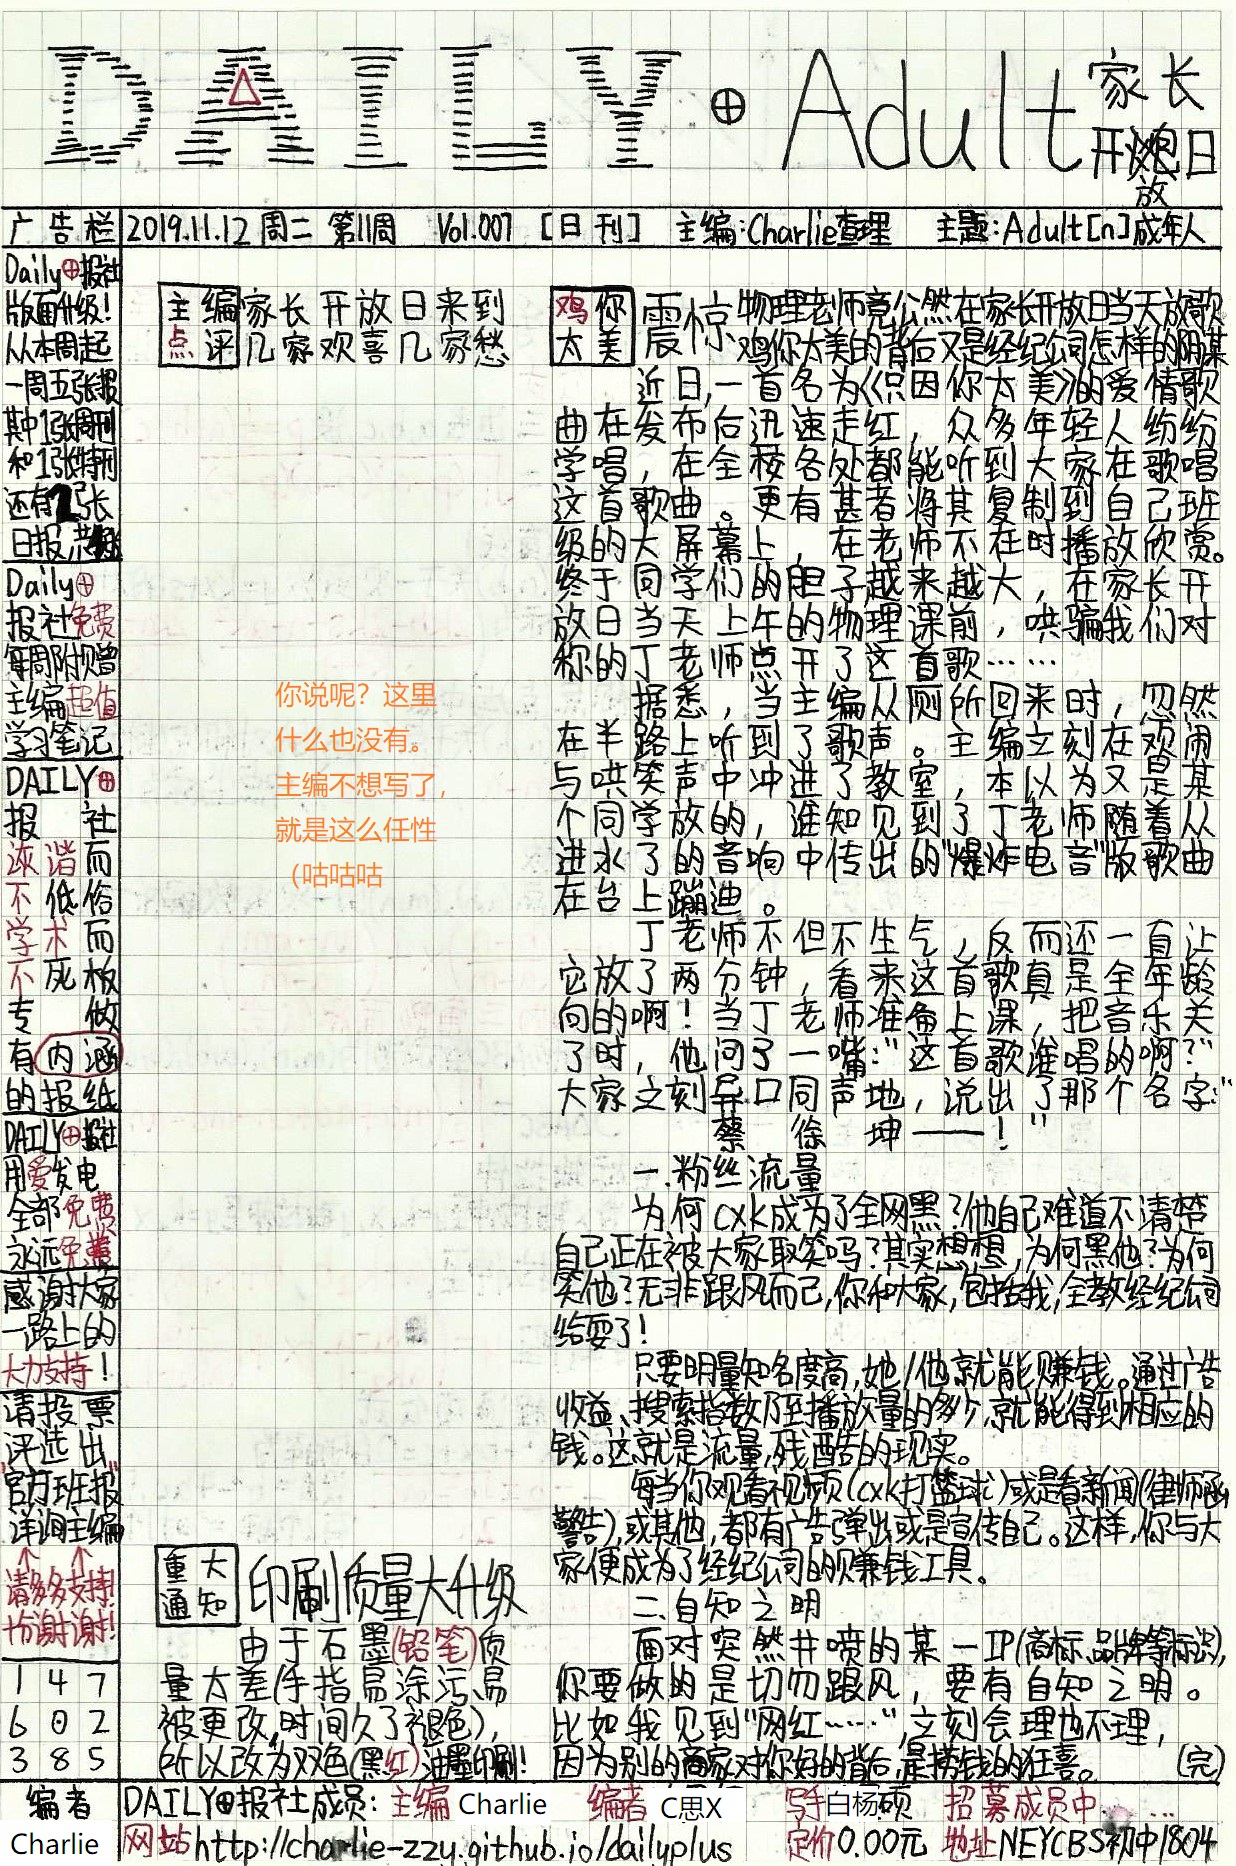 DAILY⊕Adult
家长
开放日
广告栏
2019.11.12 周二 第11周 Vol.007 [日刊] 主编:Charlie查理 主题:Adult[n]成年人
Daily⊕报社
版面升级!
从本周起
一周五张报
其中1张周刊
和1张特刊
还有2张
日报
Daily⊕
报社免费
每周附赠
主编超值
学习笔记
DAILY⊕
报社
诙谐而
不低俗
学术而
不死板
专做
有内涵
的报纸
DAILY⊕报社
用爱发电
全部免费
永远免费
感谢大家
一路上的
大力支持!
请投票
评选出
官方班报
详询主编
↑ ↑
请多多支持!
谢谢!
1 4 7
6 0 2
3 8 5
主编
点评
家长开放日来到
几家欢喜几家愁
你说呢?这里
什么也没有。
主编不想写了,
就是这么任性
(咕咕咕
重大
通知
印刷质量大升级
由于石墨(铅笔)质
量太差(手指易涂污,易
被更改,时间久了褪色),
所以改为双色(黑红)油墨印刷!
鸡你
太美
震惊 物理老师竟公然在家长开放日当天放歌
鸡你太美的背后又是经纪公司怎样的阴谋
近日,一首名为《只因你太美》的爱情歌
曲在发布后迅速走红,众多年轻人纷纷
学唱,在全校各处都能听到大家在歌唱
这首歌曲。更有甚者将其复制到自己班
级的大屏幕上,在老师不在时播放欣赏。
终于同学们的胆子越来越大,在家长开
放日当天上午的物理课前,哄骗我们对
称的丁老师点开了这首歌……
据悉,当主编从厕所回来时,忽然
在半路上听到了歌声。主编立刻在欢闹
与哄笑声中冲进了教室,本以为又是某
个同学放的,谁知见到了丁老师随着从
进水了的音响中传出的"爆炸电音"版歌曲
在台上蹦迪。
丁老师不但不生气,反而还一直让
它放了两分钟,看来这首歌真是全年龄
向的啊!当丁老师准备上课,把音乐关
了时,他问了一嘴:"这首歌谁唱的啊?"
大家立刻异口同声地,说出了那个名字:"
蔡徐坤——!"
一.粉丝流量
为何cxk成为了全网黑?他自己难道不清楚
自己正在被大家取笑吗?其实想想,为何黑他?为何
笑他?无非跟风而已,你和大家,包括我,全教经纪公司
给耍了!
只要明量知名度高,她/他就能赚钱。通过广告
收益、搜索指数乃至播放量的多少,就能得到相应的
钱。这就是流量,残酷的现实。
每当你观看视频(cxk打篮球)或是看新闻(律师函
警告),或其他,都有广告弹出或是宣传自己。这样,你与大
家便成为了经纪公司的赚钱工具。
二.自知之明
面对突然井喷的某一IP(商标、品牌等标识),
你要做的是切勿跟风,要有自知之明。
比如我见到"网红……",立刻会理也不理,
因为别的商家对你好的背后,是捞钱的狂喜。 (完)
编者
Charlie
DAILY⊕报社成员: 主编 Charlie 编者 C思X 写手 白杨硕 招募成员中……
网站 http://charlie-zzy.github.io/dailyplus 定价0.00元 地址NEYCBS初中1804